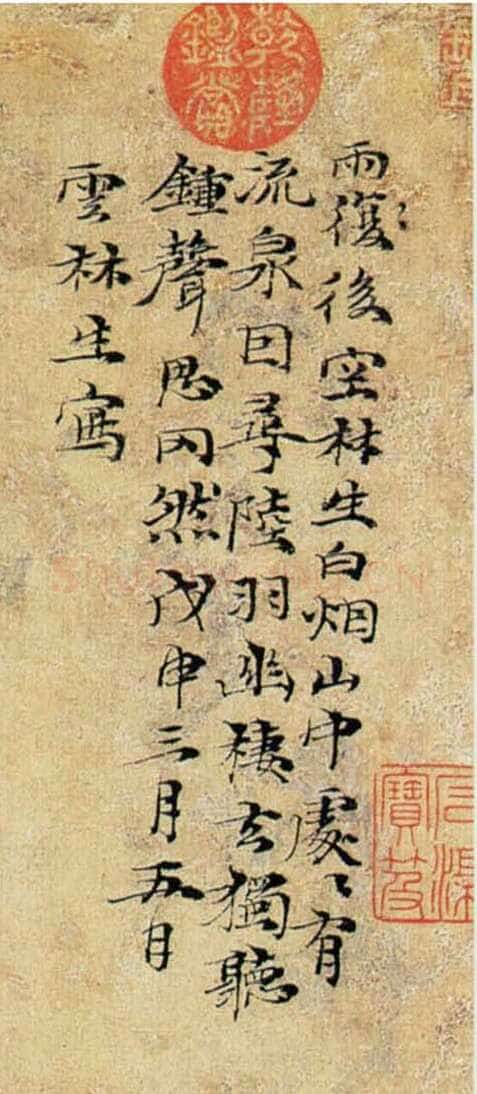 乾隆鑑賞
雨復後空林生白烟山中處〻有
流泉因尋陸羽幽棲去獨聽
鍾聲思罔然戊申三月五日
雲林生寫
石渠寶笈